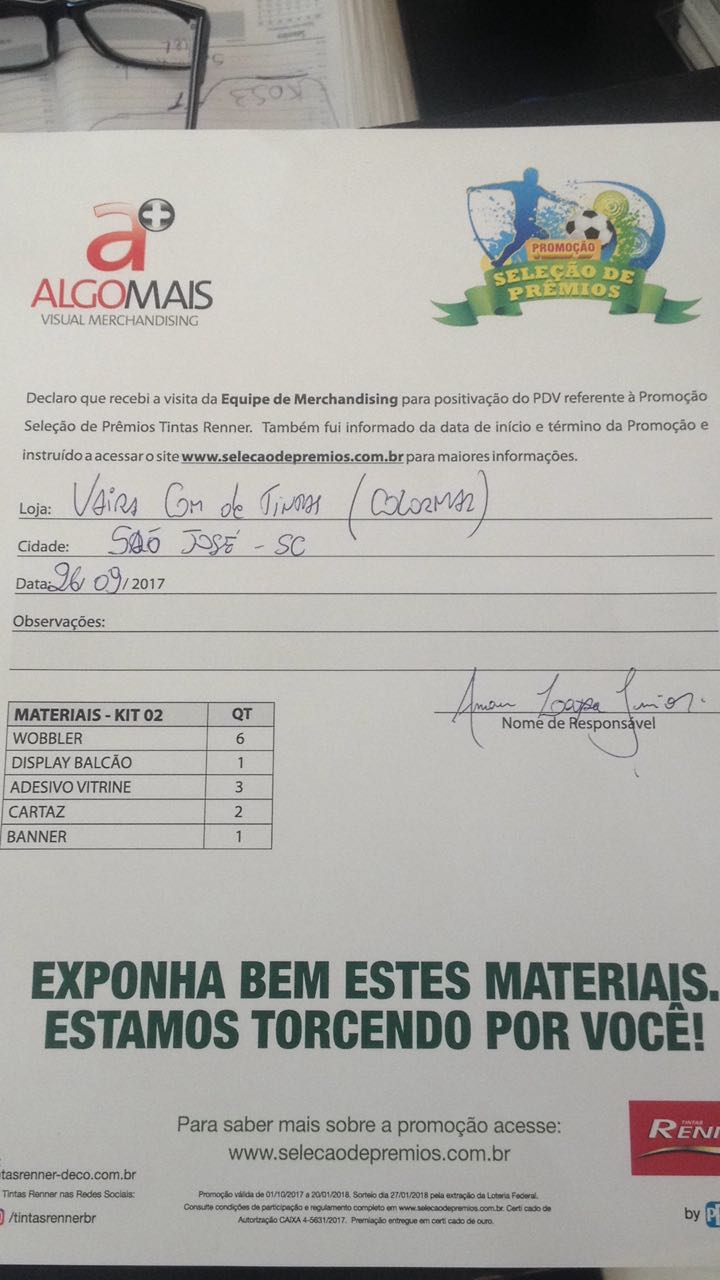 a+
ALGOMAIS
VISUAL MERCHANDISING
PROMOÇÃO
SELEÇÃO DE
PRÊMIOS
Declaro que recebi a visita da Equipe de Merchandising para positivação do PDV referente à Promoção
Seleção de Prêmios Tintas Renner. Também fui informado da data de início e término da Promoção e
instruído a acessar o site www.selecaodepremios.com.br para maiores informações.
Loja: VAIRA COM de TINTAS (COLORMAR)
Cidade: SÃO JOSÉ - SC
Data: 26/ 09/ 2017
Observações:
Junior
Nome de Responsável
MATERIAIS - KIT 02 QT
WOBBLER 6
DISPLAY BALCÃO 1
ADESIVO VITRINE 3
CARTAZ 2
BANNER 1
EXPONHA BEM ESTES MATERIAIS.
ESTAMOS TORCENDO POR VOCÊ!
Para saber mais sobre a promoção acesse:
www.selecaodepremios.com.br
TINTAS
RENN
tasrenner-deco.com.br
Tintas Renner nas Redes Sociais:
/tintasrennerbr
Promoção válida de 01/10/2017 a 20/01/2018. Sorteio dia 27/01/2018 pela extração da Loteria Federal.
Consulte condições de participação e regulamento completo em www.selecaodepremios.com.br. Certi cado de
Autorização CAIXA 4-5631/2017. Premiação entregue em certi cado de ouro.
by